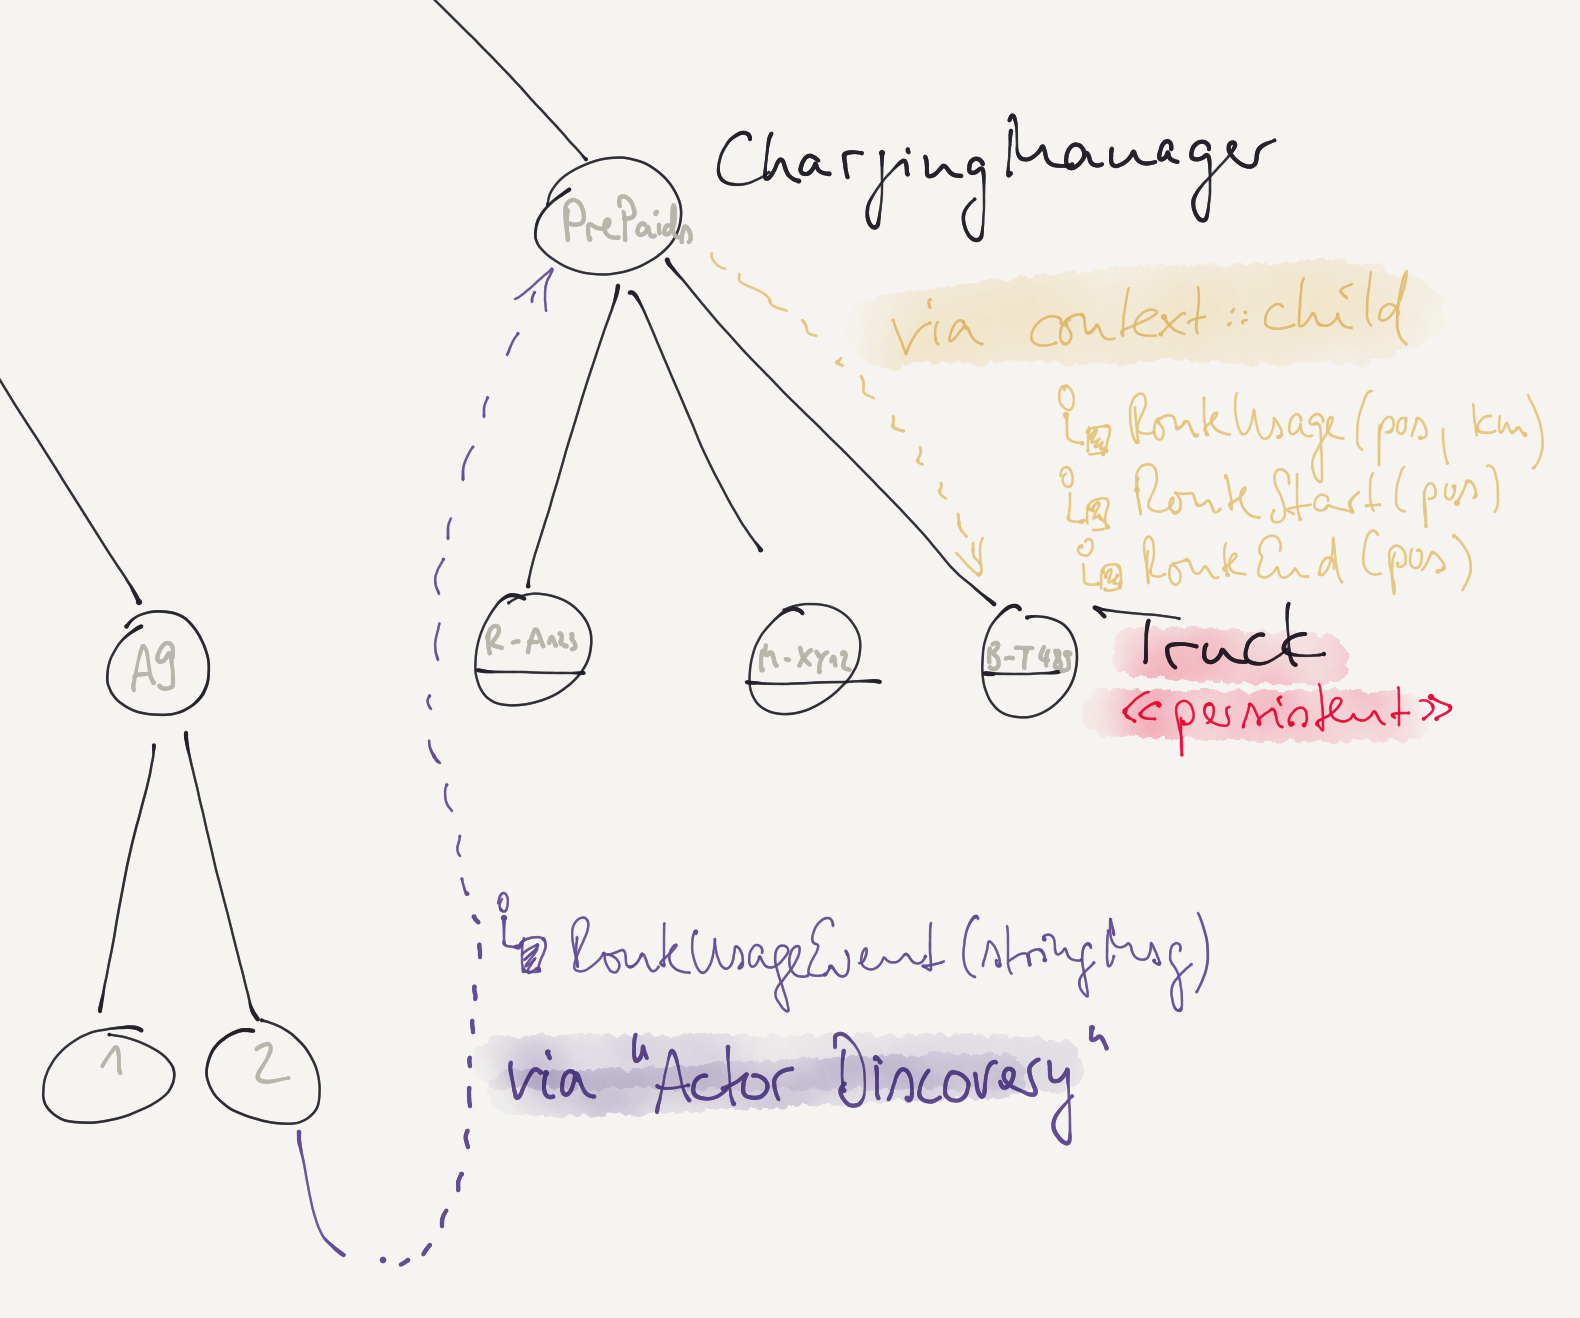 ChargingManager
PrePaid
via context::child
RouteUsage(pos, km)
RouteStart(pos)
RouteEnd(pos)
R-An23
M-XY12
B-T483
Truck
<<persistent>>
A9
RouteUsageEvent(stringMsg)
1
2
via "Actor Discovery"